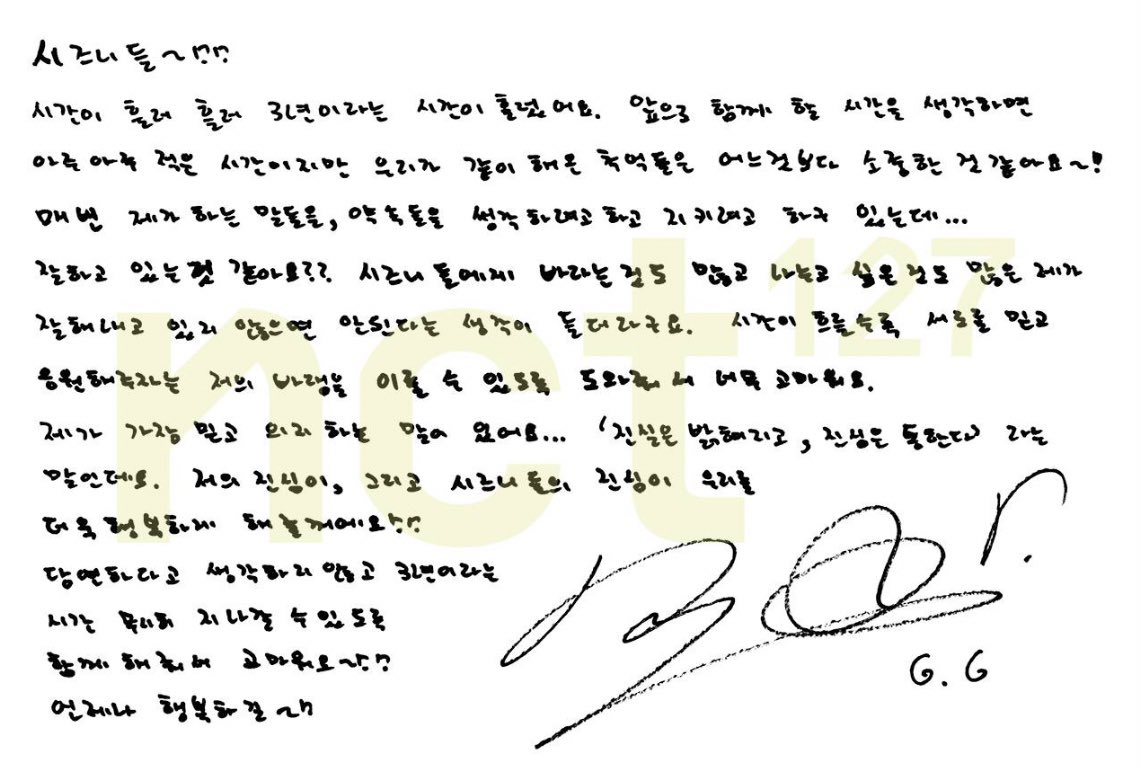 시즈니들~!??
시간이 흘러 흘러 3년이라는 시간이 흘렀어요. 앞으로 함께 할 시간을 생각하면
아주 아주 적은 시간이지만 우리가 같이 해온 추억들은 어느것보다 소중한 것 같아요~!
매번 제가 하는 말들을, 약속들을 생각하려고 하고 지키려고 하고 있는데...
잘하고 있는것 같아요?? 시즈니들에게 바라는 것도 많고 나누고 싶은 것도 많은 제가
잘해내고 있지 않으면 안된다는 생각이 들더라구요. 시간이 흐를수록 서로를 믿고
응원해주자는 저의 바램을 이룰 수 있도록 도와줘서 너무 고마워요.
제가 가장 믿고 의지하는 말이 있어요... '진실은 밝혀지고, 진심은 통한다' 라는
말인데요. 저의 진심이, 그리고 시즈니들의 진심이 우리를
더욱 행복하게 해줄거에요!??
당연하다고 생각하지 않고 3년이라는
시간 무사히 지나갈 수 있도록
함께 해줘서 고마워요~!??
언제나 행복하길~!!
G. G
nct 127